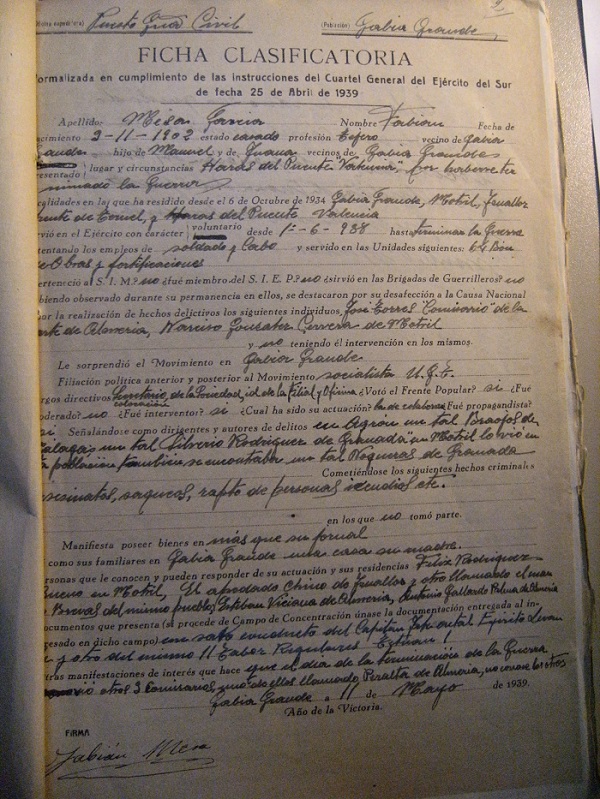 Puesto Gua Civil (Población) Gabia Grande
FICHA CLASIFICATORIA
ormalizada en cumplimiento de las instrucciones del Cuartel General del Ejército del Sur
de fecha 25 de Abril de 1939
Apellido: Mesa Garcia Nombre Fabian Fecha de
cimiento 2-11-1902 estado casado profesión vecino de Gabia
hijo de Manuel y de Juana vecinos de Gabia Grande
esentado lugar y circunstancias Haras del Puente "Valencia", por haberse ter
minado la Guerra
alidades en las que ha residido desde el 6 de Octubre de 1934 Gabia Grande, Motril,
y Haras del Puente Valencia
rvió en el Ejército con carácter voluntario desde 1º-6-938 hasta terminar la Guerra
tentando los empleos de soldado y Cabo y servido en las Unidades siguientes: 64 Bon
e Obras y fortificaciones
erteneció al S. I. M.? no ¿fué miembro del S. I. E. P.? no ¿sirvió en las Brigadas de Guerrilleros? no
biendo observado durante su permanencia en ellos, se destacaron por su desafección a la Causa Nacional
or la realización de hechos delictivos los siguientes individuos, José Torres "Comisario" de la
rte de Almeria, Narciso Gonzalez Cervera de Motril
y no teniendo él intervención en los mismos.
Le sorprendió el Movimiento en Gabia Grande
Filiación política anterior y posterior al Movimiento socialista U.G.T.
rgos directivos de la Sociedad, id de la Filial y Oficina ¿Votó el Frente Popular? si ¿Fué
oderado? no ¿Fué interventor? si ¿Cual ha sido su actuación? la de colaboracion ¿Fué propagandista?
si Señalándose como dirigentes y autores de delitos en Agron un tal
alagas un tal Silverio Rodriguez de Granada" en Motril lo vió en
a poblacion tambien se encontraba un tal Nogueras de Granada
Cometiéndose los siguientes hechos criminales
sesinatos, saqueos, rapto de personas incendios etc.
en los que no tomó parte.
Manifiesta poseer bienes en más que su jornal
como sus familiares en Gabia Grande una casa su madre.
rsonas que le conocen y pueden responder de su actuación y sus residencias Feliz Rodriguez
en Motril, El apodado Chino de y otro llamado el
Brevas del mismo pueblo, Esteban Viciana de Almeria, Antonio Gallardo Palma de Almeria
ocumentos que presenta (si procede de Campo de Concentración únase la documentación entregada al in-
gresado en dicho campo) un salvo conducto del Capitan Ejército Levan
y otro del mismo 11 Tabor Regulares
tras manifestaciones de interés que hace que el dia de la terminación de la Guerra
otros 3 Comisarios, uno de ellos llamado Peralta de Almeria, no conoce los otros
Gabia Grande a 11 de Mayo de 1939.
Año de la Victoria.
FIRMA
Fabián Mesa